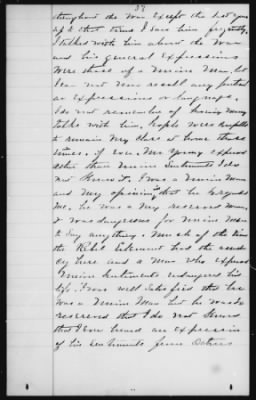 37
throughout the War except the last year
of it that time I saw him frequently
I talked with him about the War
and his general expressions
were those of a Union Man, but
I can not now recall any particular
expressions or language.
I do not remember of having many
talks with him, people were compelled
to remain very close at home those
times, if ever Mr Young expressed
other than Union Sentiments I do
not know it. I was a Union Man
and my opinion that he was
he was a very reserved man,
it was dangerous for Union Men
to say anything. Much of the time
the Rebel Element had the ascendency
here and a man who expressed
Union Sentiments endangered his
life. I was well satisfied that he
was a Union Man but he was so
reserved that I do not know
that I ever heard an expression
of his sentiments from others